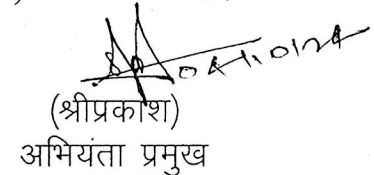 (श्रीप्रकाश)
अभियंता प्रमुख